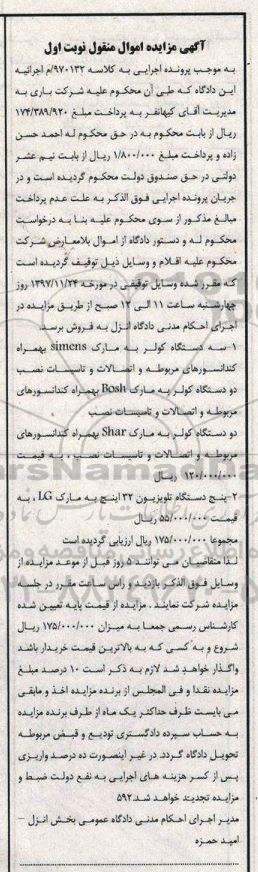 آگهی مزایده اموال منقول نوبت اول
به موجب پرونده اجرایی به کلاسه ۹۷۰۱۳۲/م اجرائیه
این دادگاه که طی آن محکوم علیه شرکت باری به
مدیریت آقای کیهانفر به پرداخت مبلغ ۱۷۴/۳۸۹/۹۲۰
ریال از بابت محکوم به در حق محکوم له احمد حسن
زاده و پرداخت مبلغ ۱/۸۰۰/۰۰۰ ریال از بابت نیم عشر
دولتی در حق صندوق دولت محکوم گردیده است و در
جریان پرونده اجرایی فوق الذکر به علت عدم پرداخت
مبالغ مذکور از سوی محکوم علیه بنا به درخواست
محکوم له و دستور دادگاه از اموال بلامعارض شرکت
محکوم علیه اقلام و وسایل ذیل توقیف گردیده است
که مقرر شده وسایل توقیفی در مورخه ۱۳۹۷/۱۱/۲۴ روز
چهارشنبه ساعت ۱۱ الی ۱۲ صبح از طریق مزایده در
اجرای احکام مدنی دادگاه انزل به فروش برسد.
۱- سه دستگاه کولر به مارک simens بهمراه
کندانسورهای مربوطه و اتصالات و تاسیسات نصب
دو دستگاه کولر به مارک Bosh بهمراه کندانسورهای
مربوطه و اتصالات و تاسیسات نصب
دو دستگاه کولر به مارک Shar بهمراه کندانسورهای
مربوطه و اتصالات و تاسیسات نصب ، به قیمت
۱۲۰/۰۰۰/۰۰۰ ریال
۲- پنج دستگاه تلویزیون ۳۲ اینچ به مارک LG ، به
قیمت ۵۵/۰۰۰/۰۰۰ ریال
مجموعا ۱۷۵/۰۰۰/۰۰۰ ریال ارزیابی گردیده است
لذا متقاضیان می توانند ۵ روز قبل از موعد مزایده از
وسایل فوق الذکر بازدید و راس ساعت مقرر در جلسه
مزایده شرکت نمایند . مزایده از قیمت پایه تعیین شده
کارشناس رسمی جمعا به میزان ۱۷۵/۰۰۰/۰۰۰ ریال
شروع و به کسی که به بالاترین قیمت خریدار باشد
واگذار خواهد شد لازم به ذکر است ۱۰ درصد مبلغ
مزایده نقدا و فی المجلس از برنده مزایده اخذ و مابقی
می بایست ظرف حداکثر یک ماه از طرف برنده مزایده
به حساب سپرده دادگستری تودیع و قبض مربوطه
تحویل دادگاه گردد. در غیر اینصورت ده درصد واریزی
پس از کسر هزینه های اجرایی به نفع دولت ضبط و
مزایده تجدید خواهد شد.۵۹۲
مدیر اجرای احکام مدنی دادگاه عمومی بخش انزل –
امید حمزه